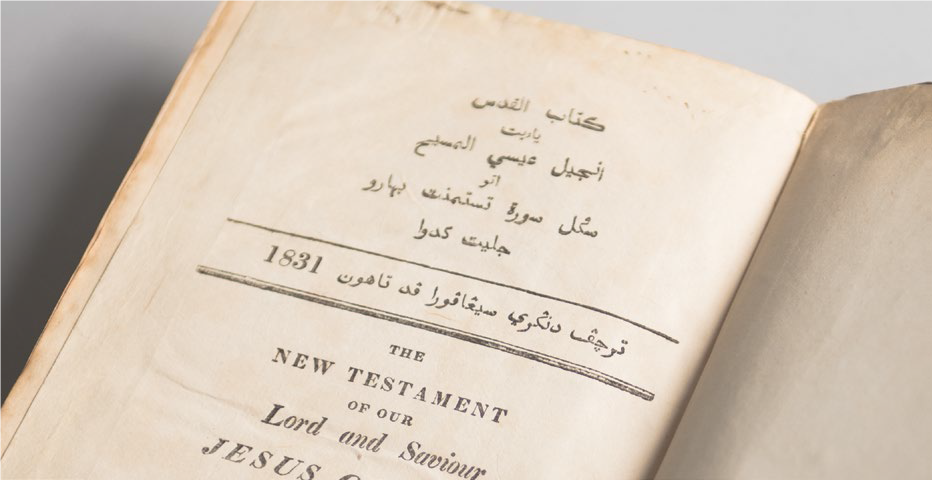 كتاب القدس
ياايت
انجيل عيسي المسيح
اتو
سݢل سورة تستمنت بهارو
جليت كدوا
ترچڤ دنݢري سيڠاڤورا ڤد تاهون 1831
THE
NEW TESTAMENT
OF OUR
Lord and Saviour
JESUS